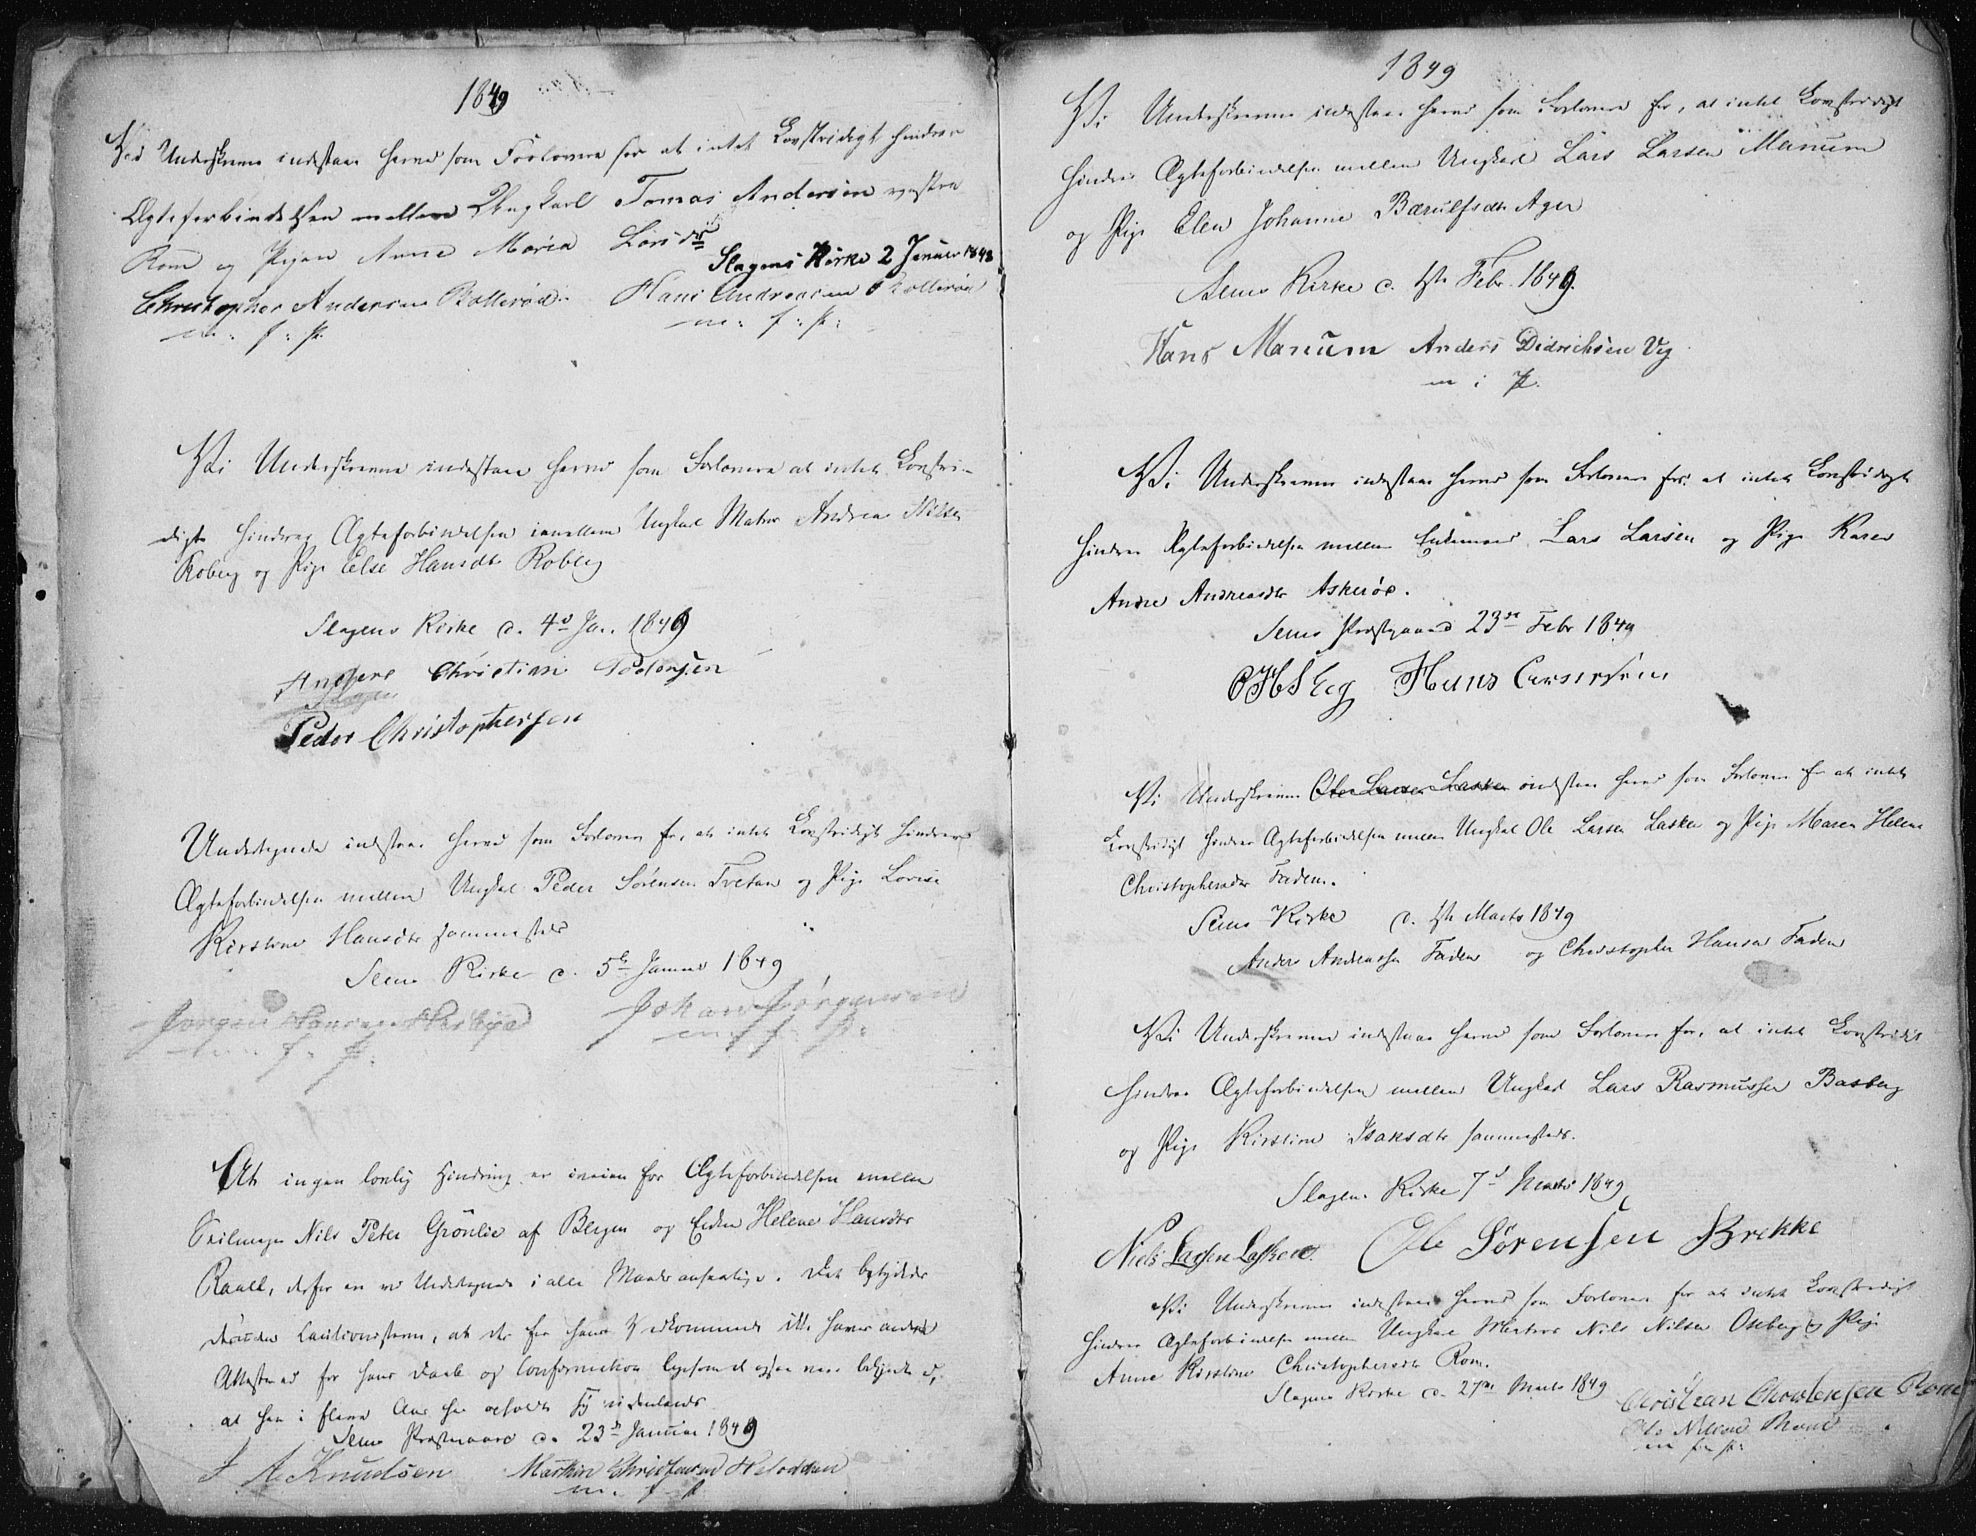 1849
Ved Underskrevne indestaae herved som Forlovere for at intet Lovstridigt hindrer
Ægteforbindelsen mellem Ungkarl Tomas Andersen vestre
Rom og Pigen Anne Maria Larsdtr
Slagens Kirke 2 Januar 1849
Christopher Andersen Rollerød. Hans Andreasen Rollerød
m. f. P. m: f: P:
Vi Underskrevne indestaae herved som Forlovere at intet Lovstri-
digt hindrer Ægteforbindelsen imellem Ungkarl Matros Andreas Nilsen
Roberg og Pige Else Hansdtr Roberg
Slagens Kirke d. 4d Jan. 1849
Anders Christian Pedersen
Slagen
Peder Christophersen
Undertegnede indestaae herved som Forlovere for, at intet Lovstridigt hindrer
Ægteforbindelsen mellem Ungkarl Peder Sørensen Tvetan og Pige Lovise
Kirstine Hansdtr sammesteds
Sems Kirke d. 5te Januar 1849
Jørgen Hansen Johan Jørgensen
m. f. P. m f P:
At ingen lovlig Hindring er iveien for Ægteforbindelsen mellem
Seilmager Nils Peter Grönlie af Bergen og Enken Helene Hansdtr
Raael, derfor ere vi Undertegnede i alle Maader ansvarlige. Det betydes
desuden Cautionisterne, at der for hans Vedkommende ikke haves andre
Attester ei for hans Daab og Confirmation ligesom det ogsaa være betydet d.
at han i flere Aar har opholdt sig udenlands
Sems Præstegaard d. 23de Januar 1849
J A Knudsen Mathias Christensen
m. f. P.
1849
Vi Underskrevne indestaae herved som Forlovere for, at intet Lovstridigt
hindrer Ægteforbindelsen mellem Ungkarl Lars Larsen Manum
og Pige Elen Johanne Bærulfsdtr Ager
Sems Kirke d. 1ste Febr. 1849.
Hans Manum Anders Didrichsen Veg
m i P.
Vi Underskrevne indestaae herved som Forlovere for: at intet Lovstridigt
hindrer Ægteforbindelsen mellem Enkemand Lars Larsen og Pige Karen
Andre Andreasdtr Askerøe.
Sems Præstegaard 23de Febr 1849
Hans
Vi Underskrevne Ole Larsen Lasken indestaae herved som Forlovere for at intet
Lovstridigt hindrer Ægteforbindelsen mellem Ungkarl Ole Larsen Lasken og Pige Maren Helene
Christophersdtr Faden.
Sems Kirke d. 1ste Marts 1849
Anders Andreassen Faden og Christopher Hansen Faden
Vi Underskrevne indestaae herved som Forlovere for, at intet Lovstridigt
hindrer Ægteforbindelsen mellem Ungkarl Lars Rasmussen Basberg
og Pige Kirstine Isaksdtr sammesteds.
Slagens Kirke 7d Marts 1849
Niels Larssen Lasken. Ole Sørensen Brekke
Vi Underskrevne indestaae herved som Forlovere for at intet Lovstridigt
hindrer Ægteforbindelse mellem Ungkarl Matros Nils Nilsen Oseberg og Pige
Anne Kirstine Christophersdtr Rom.
Slagens Kirke d. 27de Marts 1849
Christian Christensen Rom
Ole Nilsen
m f P: